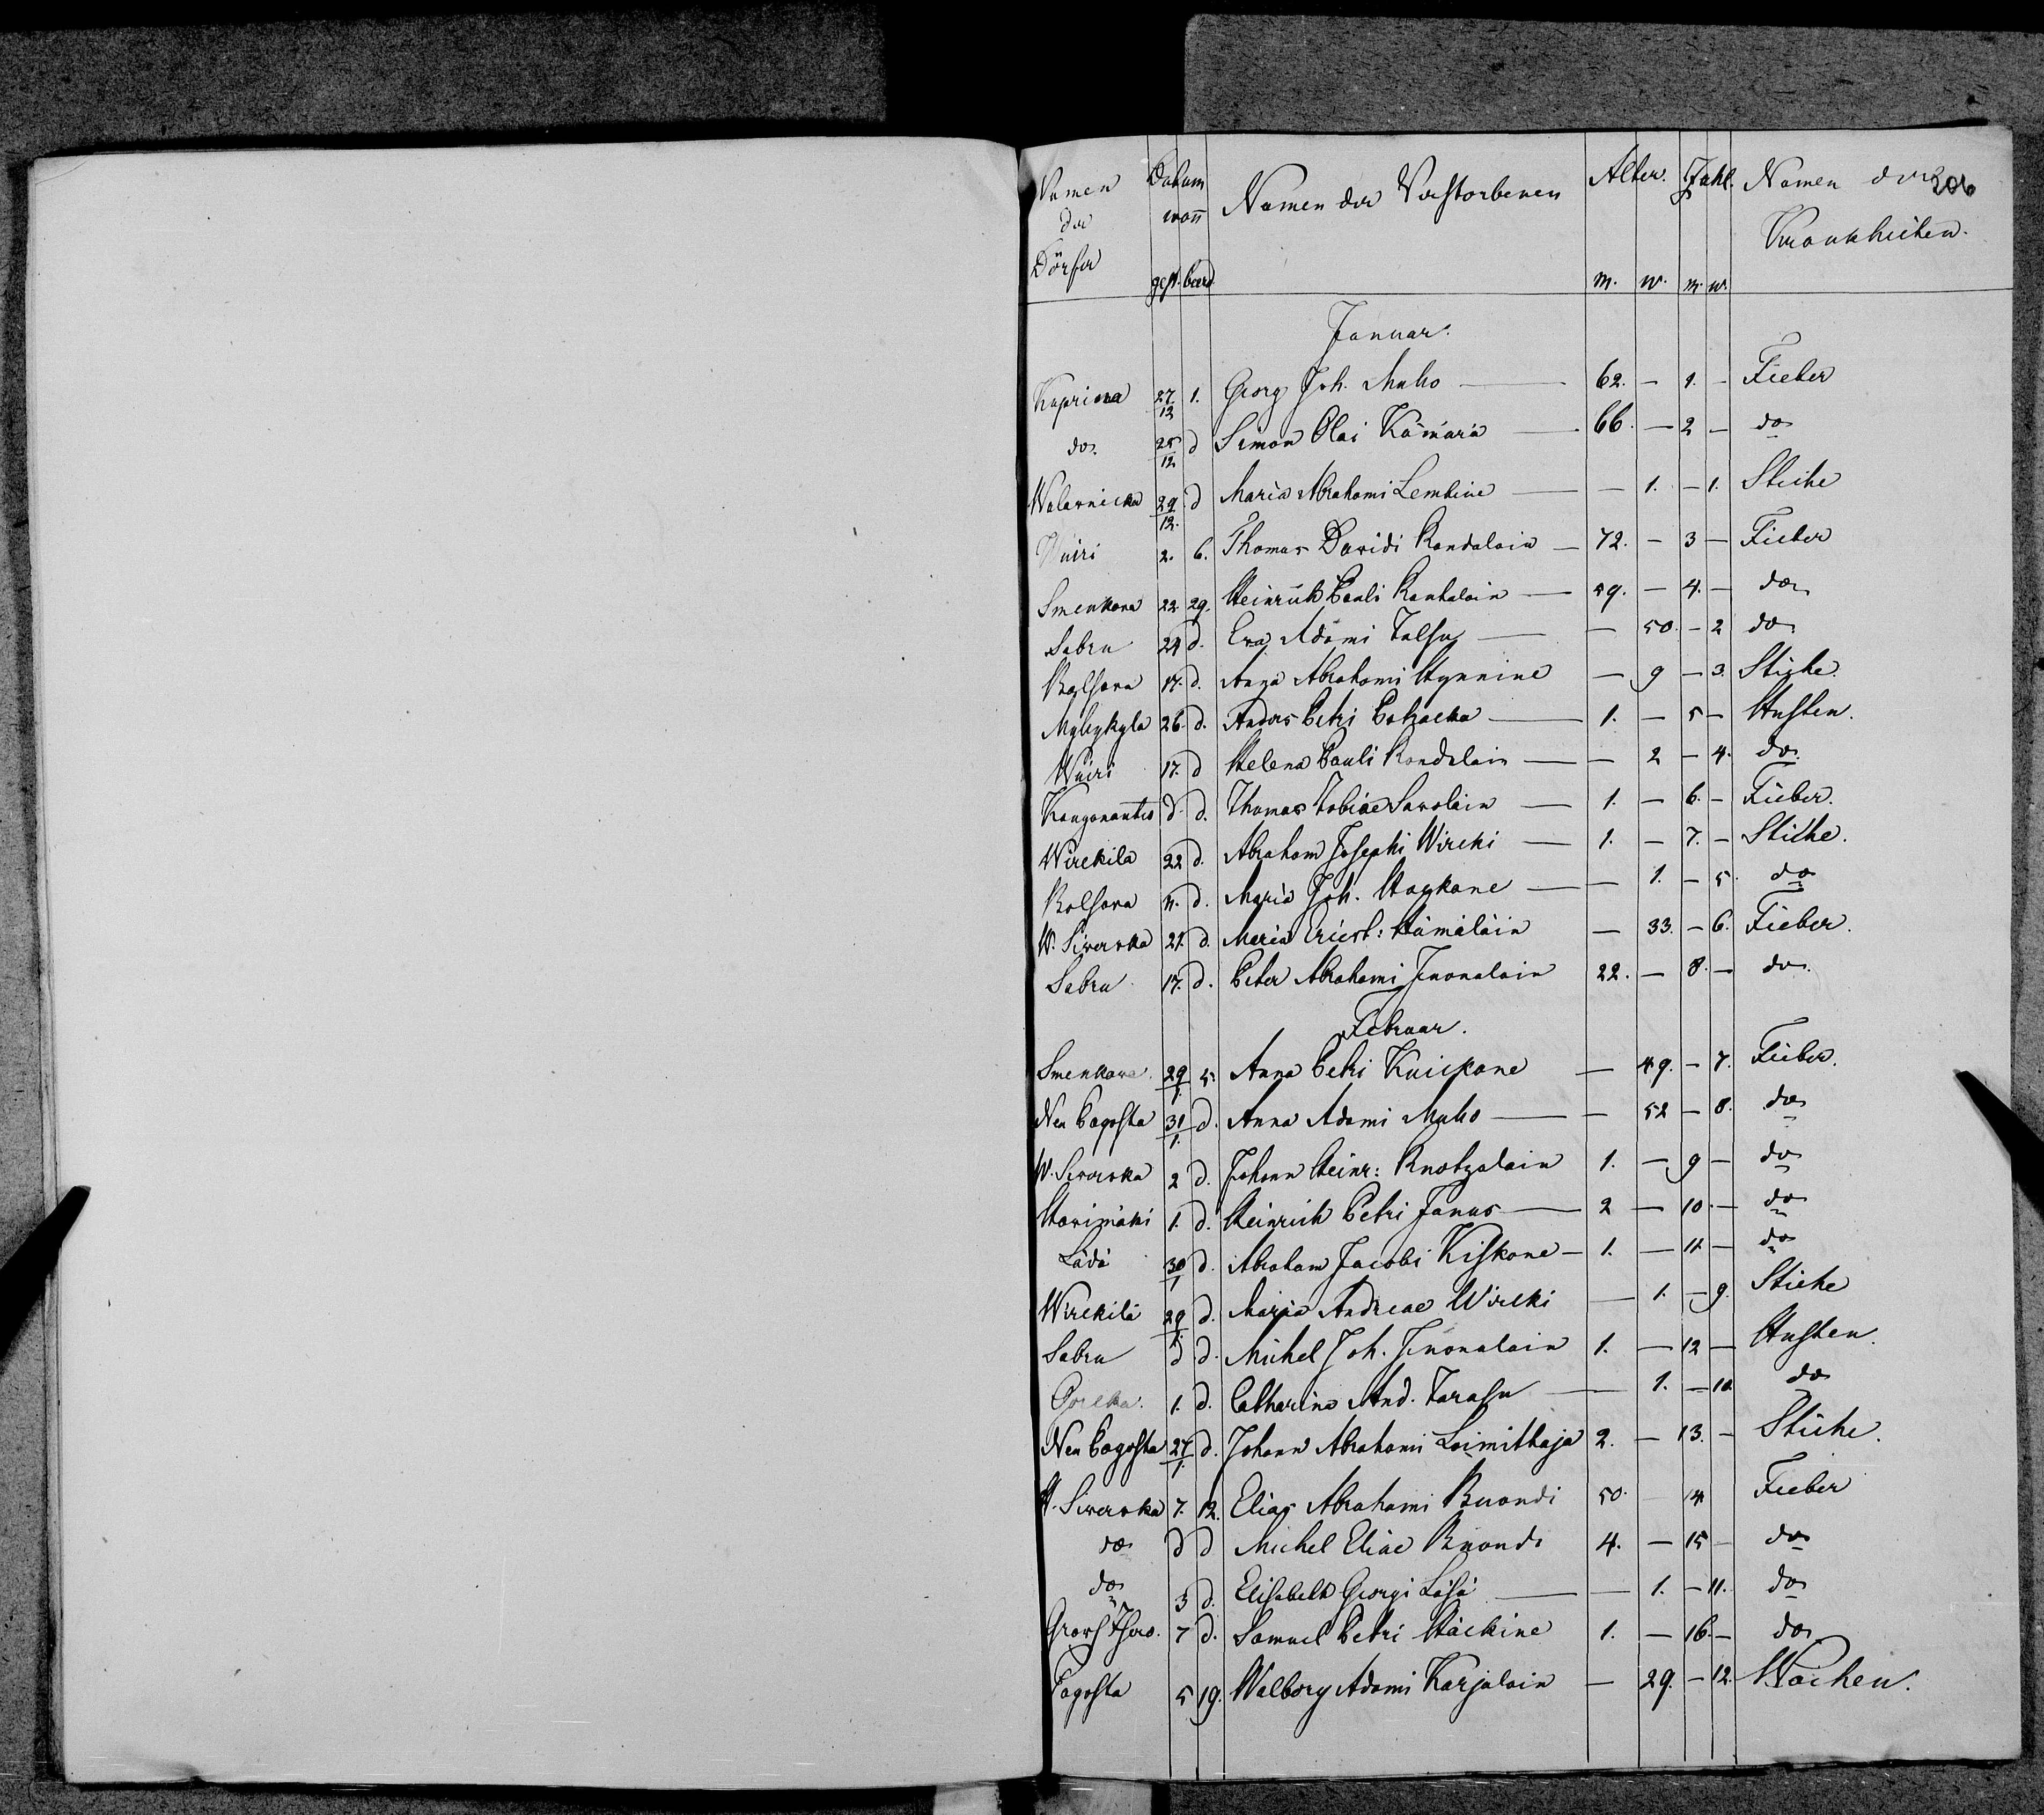 Namen Datum Namen der Verstorbenen Alter. Zahl. Namen der 206
der wañ Krankheiten.
Dörfer gest. beerd. m. w. m. w.
Januar.
Kuprina 27/12 1. Georg Joh. Muho — 62. — 1. — Fieber
do. 25/12 d Simon Olai Kämärä — 66. — 2 — do
Walarnicka 29/12. d Maria Abrahami Lembine — — 1. — 1. Stiche
Wuiri 2. 6. Thomas Davidi Randalain — 72. — 3 — Fieber
Smenkova 22 29. Heinrich Pauli Rantalain — 59. — 4. — do
Sabru 24 d. Eva Adami Talsu — — 50. — 2 do
17. d. Anna Abrahami Hynnine — 9 — 3. Stiche.
Myllykyla 26. d. Anders Petri — 1. — 5 — Husten.
Wuiri 17. d Helena Pauli Randalain — — 2 — 4. do.
d d. Thomas Tobiae Savolain — 1. — 6. — Fieber.
Wirekila 22 d. Abraham Josephi Wireki — 1. — 7. — Stiche.
11. d. Maria Joh. Haykane — — 1. — 5. do
W. Siverska 21. d. Maria Ericst: Hämäläin — 33. — 6. Fieber.
Sabru 17. d. Peter Abrahami Inonalain 22. — 8. — do.
Februar.
Smenkova 29/1. 5. Anna Petri Kuickane — 49. — 7. Fieber.
Neu Pagosta 31/1. d. Anna Adami Muho — — 52 — 8. do
W. Siverska 2 d. Johann Heinr: Ruotzalain 1. — 9 — do
Harimäki 1. d. Heinrich Petri Janus — 2 — 10. — do
Lädä 30/1 d. Abraham Jacobi Kiskone — 1. — 11. — do
Wirekilä 29/1. d. Maria Andreae Wireki — 1. — 9. Stiche
Sabru d d. Michel Joh. Inonalain 1. — 12 — Husten.
Gorelka. 1. d. Catharina And. Tarasu — 1. — 10. do
Neu Pagosta 27/1. d. Johann Abrahami Loimittaja 2. — 13. — Stiche.
W. Siverska 7. 12. Elias Abrahami Ruondi 50. — 14 Fieber
do d d Michel Eliae Ruondi 4. — 15 — do
do 3 d. Elisabeth Georgi Läsä — — 1. — 11. do
7 d. Samuel Petri Häckine 1. — 16. — do
Pagosta 5 19. Walborg Adami Karjalain — 29. — 12. Wochen.